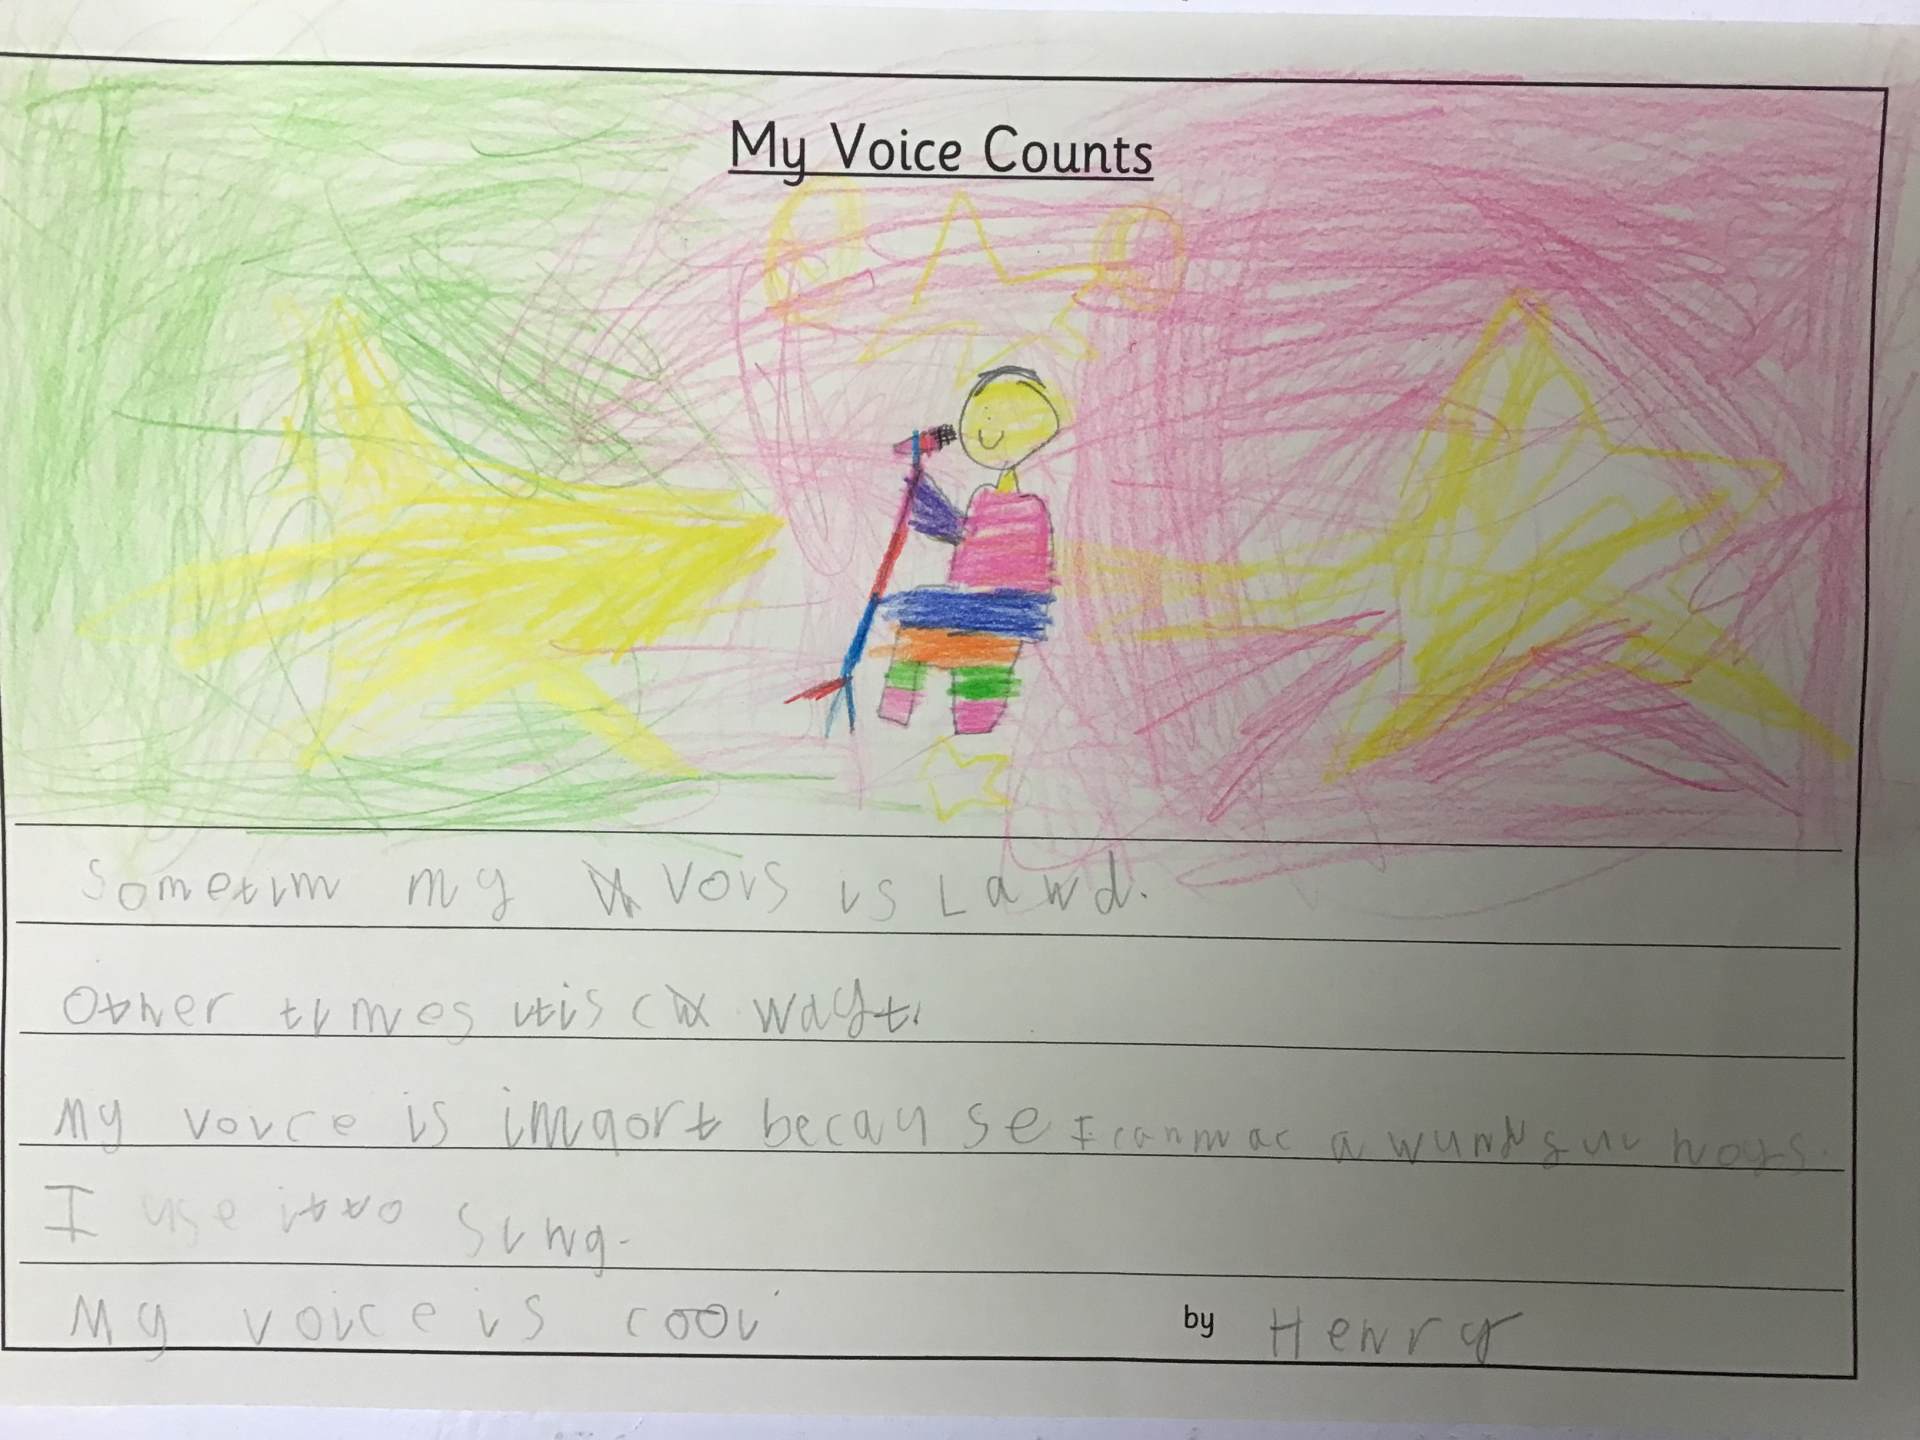 My Voice Counts
Sometim my vois is Lawd.
Other times itis cwayt.
My voice is imqort because I can mac a wundfuu noys.
I use it to sing.
My voice is cool
by Henry